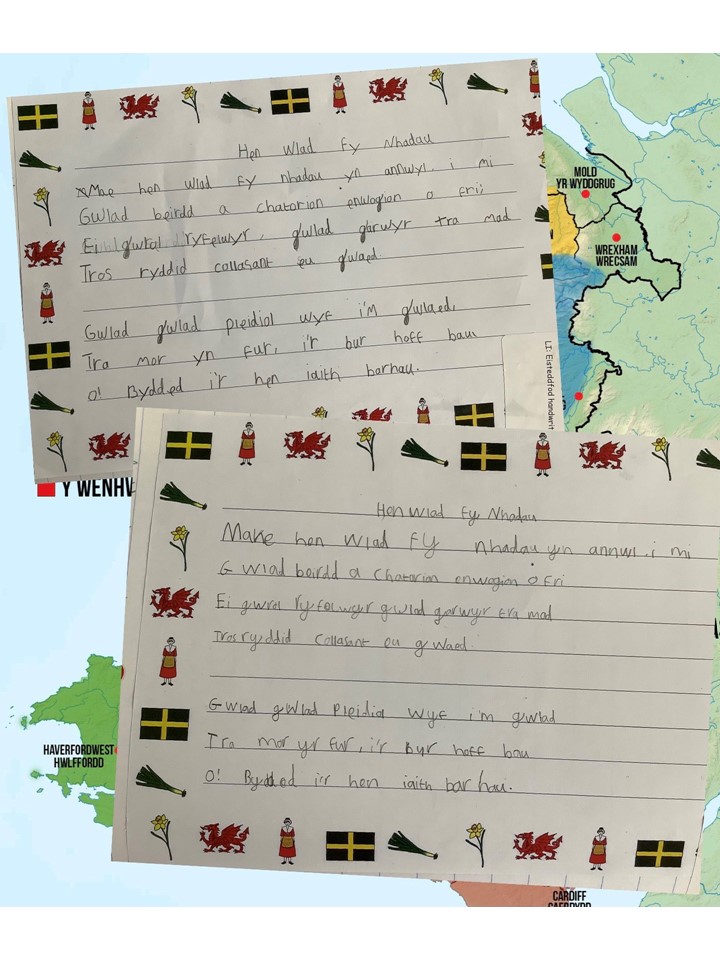 Hen Wlad Fy Nhadau
Mae hen wlad Fy nhadau yn annwyl i mi
Gwlad beirdd a chatorion enwogion o Frii
Ei gwrol ryfelwyr, gwllad garwyr tra mad
Tros ryddid collasant eu gwaed
Gwlad gwlad pleidiol wyf i'M gwlaed,
Tra mor yn Fur, i'r bur hoff bau
O! Bydded i'r hen iaith barhau.
LI: Eisteddfod handwrit
MOLD
YR WYDDGRUG
WREXHAM
WRECSAM
Y WENHV
Hen Wlad Fy Nhadau
Make hen Wlad FY nhadau yn annwl. i mi
G wlad beirdd a Chatorion enwogion o Fri
Ei gwrol ryfelwyr gwlad garwyr tra mad
Trosryddid Collasant eu g waed
Gwlad gwlad Pleidiol wyf i'm gwlad
Tra mor yr fur, i'r Byr hoff bau
O! Bydded i'r hen iaith bar hau.
HAVERFORDWEST
HWLFFORDD
CARDIFF
CAERDYDD